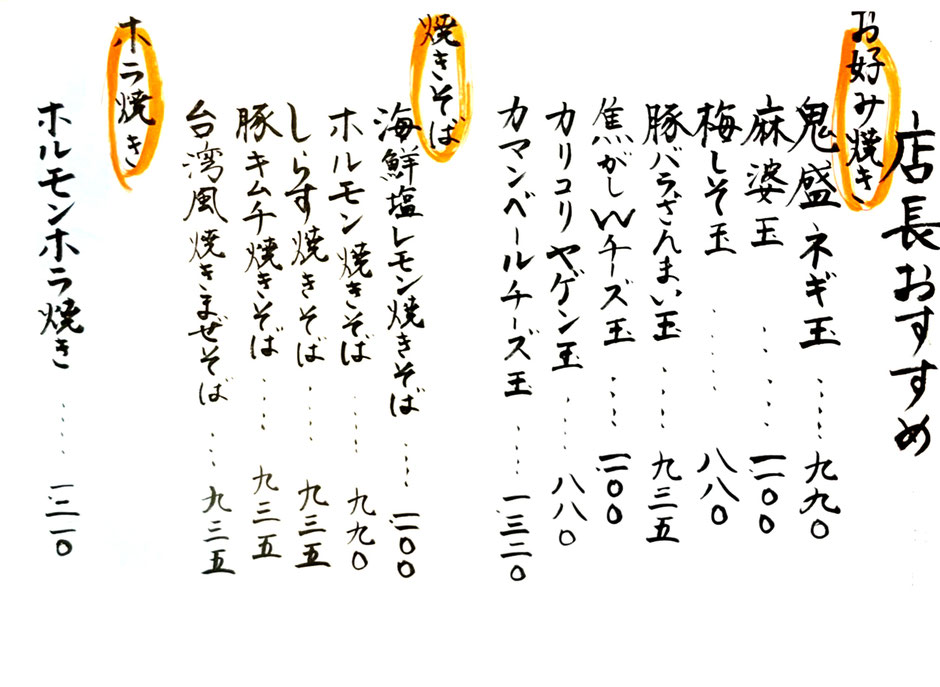 店長おすすめ
お好み焼き
鬼盛ネギ玉 ‥‥‥ 九九〇
麻婆玉 ‥‥ 一一〇〇
梅しそ玉 ‥‥‥ 八八〇
豚バラざんまい玉 ‥‥‥ 九三五
焦がしWチーズ玉 ‥‥ 一一〇〇
カリコリヤゲン玉 ‥‥ 八八〇
カマンベールチーズ玉 ‥‥ 一三二〇
焼きそば
海鮮塩レモン焼きそば ‥‥ 一一〇〇
ホルモン焼きそば ‥‥‥ 九九〇
しらす焼きそば ‥‥ 九三五
豚キムチ焼きそば ‥‥ 九三五
台湾風焼きまぜそば ‥‥ 九三五
ホラ焼き
ホルモンホラ焼き ‥‥‥ 一二一〇